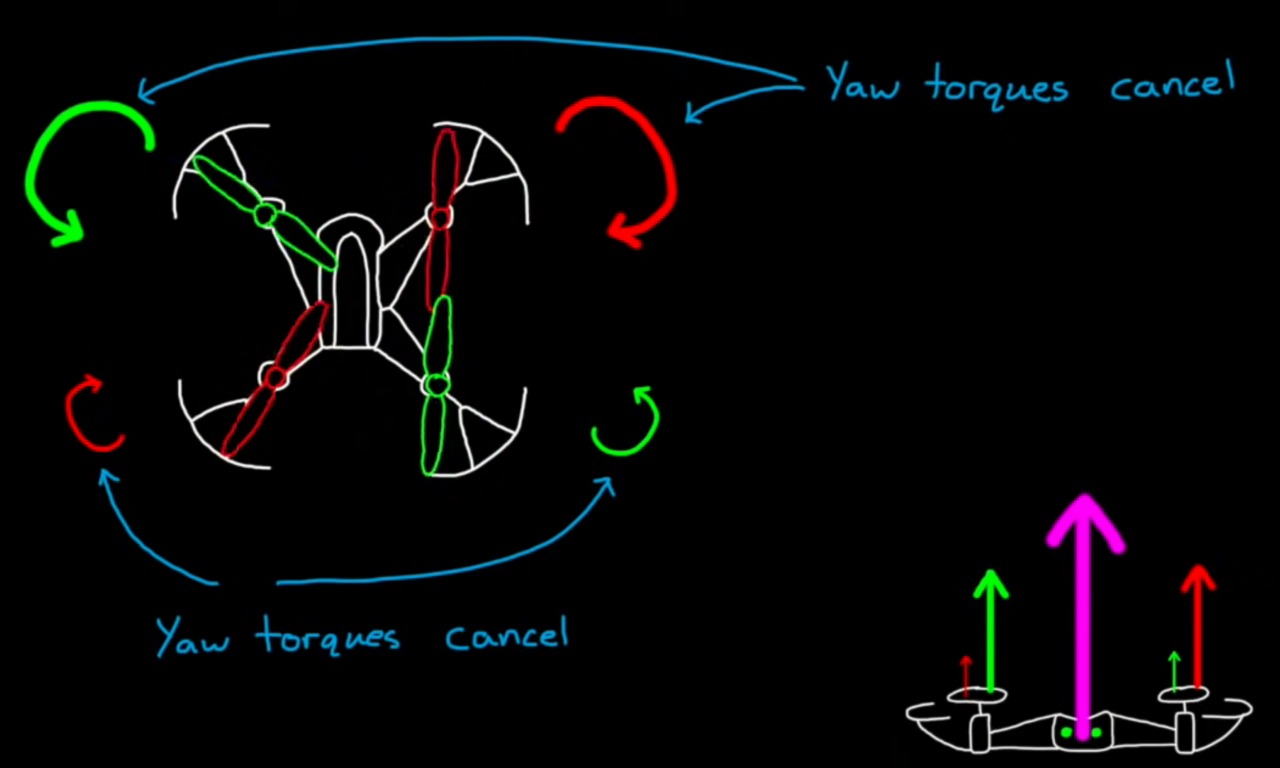 Yaw torques cancel
Yaw torques cancel